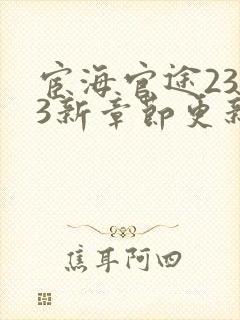 宦海官途23
3新章节更新
焦耳阿四